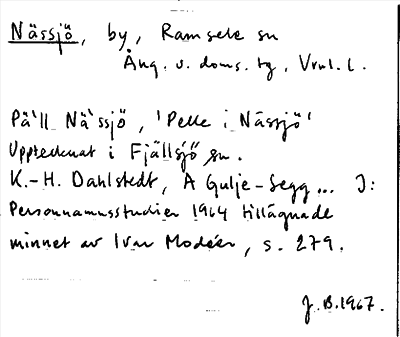 Nässjö, by, Ramsele sn
Ång. v. doms. tg, Vrnl. l.
Pä`ll Nä`ssjö, 'Pelle i Nässjö'
Upptecknat i Fjällsjö sn.
K.-H. Dahlstedt, A Gulje-Segg... I:
Personnamnsstudier 1964 tillägnade
minnet av Ivar Modéer, s. 279.
J. B. 1967.